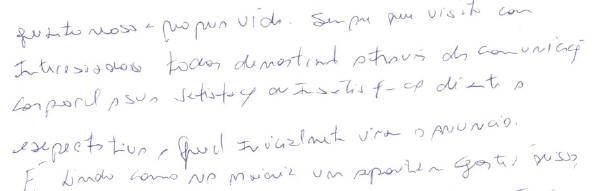 nossa propria vida. Sempre que visito com
Interessados todos demostram através da comunicaç
corporal a sua satisfaç ou Insatisfação diante a
expectativa, Qual Inicialmente viram o anuncio.
É lindo como na maioria um aponta